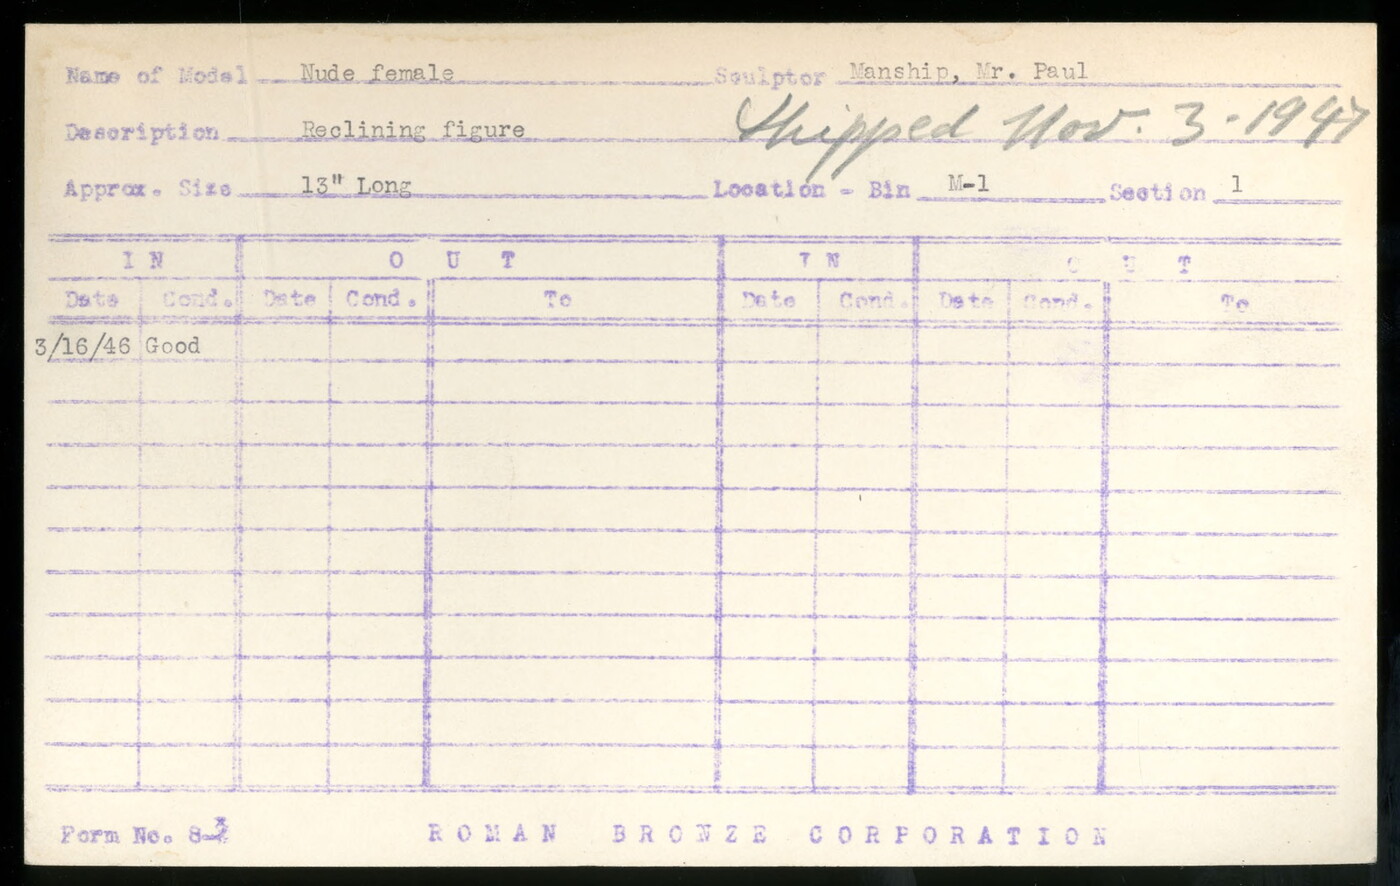 Name of Model Nude female Sculptor Manship, Mr. Paul
Shipped Nov. 3-1947
Description Reclining figure
Approx. Size 13" Long Location - Bin M-1 Section 1
IN OUT IN OUT
Date Cond. Date Cond. To Date Cond. Date Cond. To
3/16/46 Good
Form No. 8-
ROMAN BRONZE CORPORATION